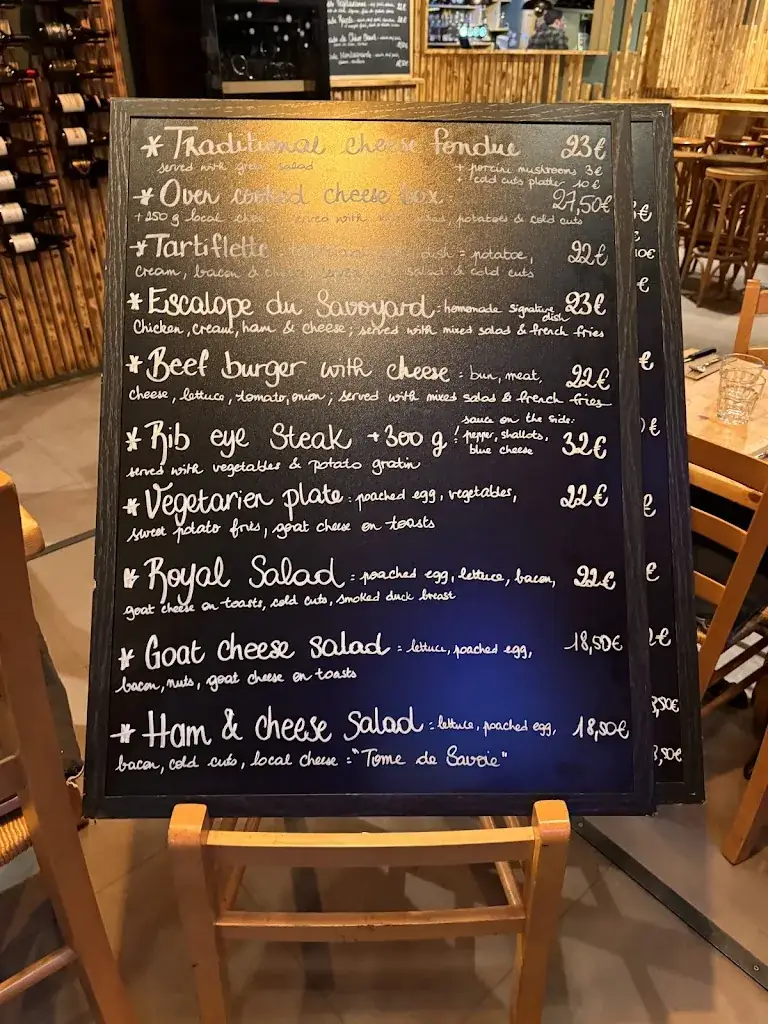 * Traditional cheese fondue 23€
served with green salad + porcini mushrooms 3€
+ cold cuts platter 10€
* Oven cooked cheese box 27,50€
+250 g local cheese served with salad, potatoes & cold cuts
* Tartiflette dish = potatoe, 22€
cream, bacon & cheese salad & cold cuts
* Escalope du Savoyard = homemade signature dish 23€
Chicken, cream, ham & cheese; served with mixed salad & french fries
* Beef burger with cheese = bun, meat, 22€
cheese, lettuce, tomato, onion; served with mixed salad & french fries
* Rib eye Steak +300 g ! sauce on the side: pepper, shallots, blue cheese 32€
served with vegetables & potato gratin
* Vegetarien plate = poached egg, vegetables, 22€
sweet potato fries, goat cheese on toasts
* Royal Salad = poached egg, lettuce, bacon, 22€
goat cheese on toasts, cold cuts, smoked duck breast
* Goat cheese salad = lettuce, poached egg, 18,50€
bacon, nuts, goat cheese on toasts
* Ham & cheese Salad = lettuce, poached egg, 18,50€
bacon, cold cuts, local cheese = "Tome de Savoie"